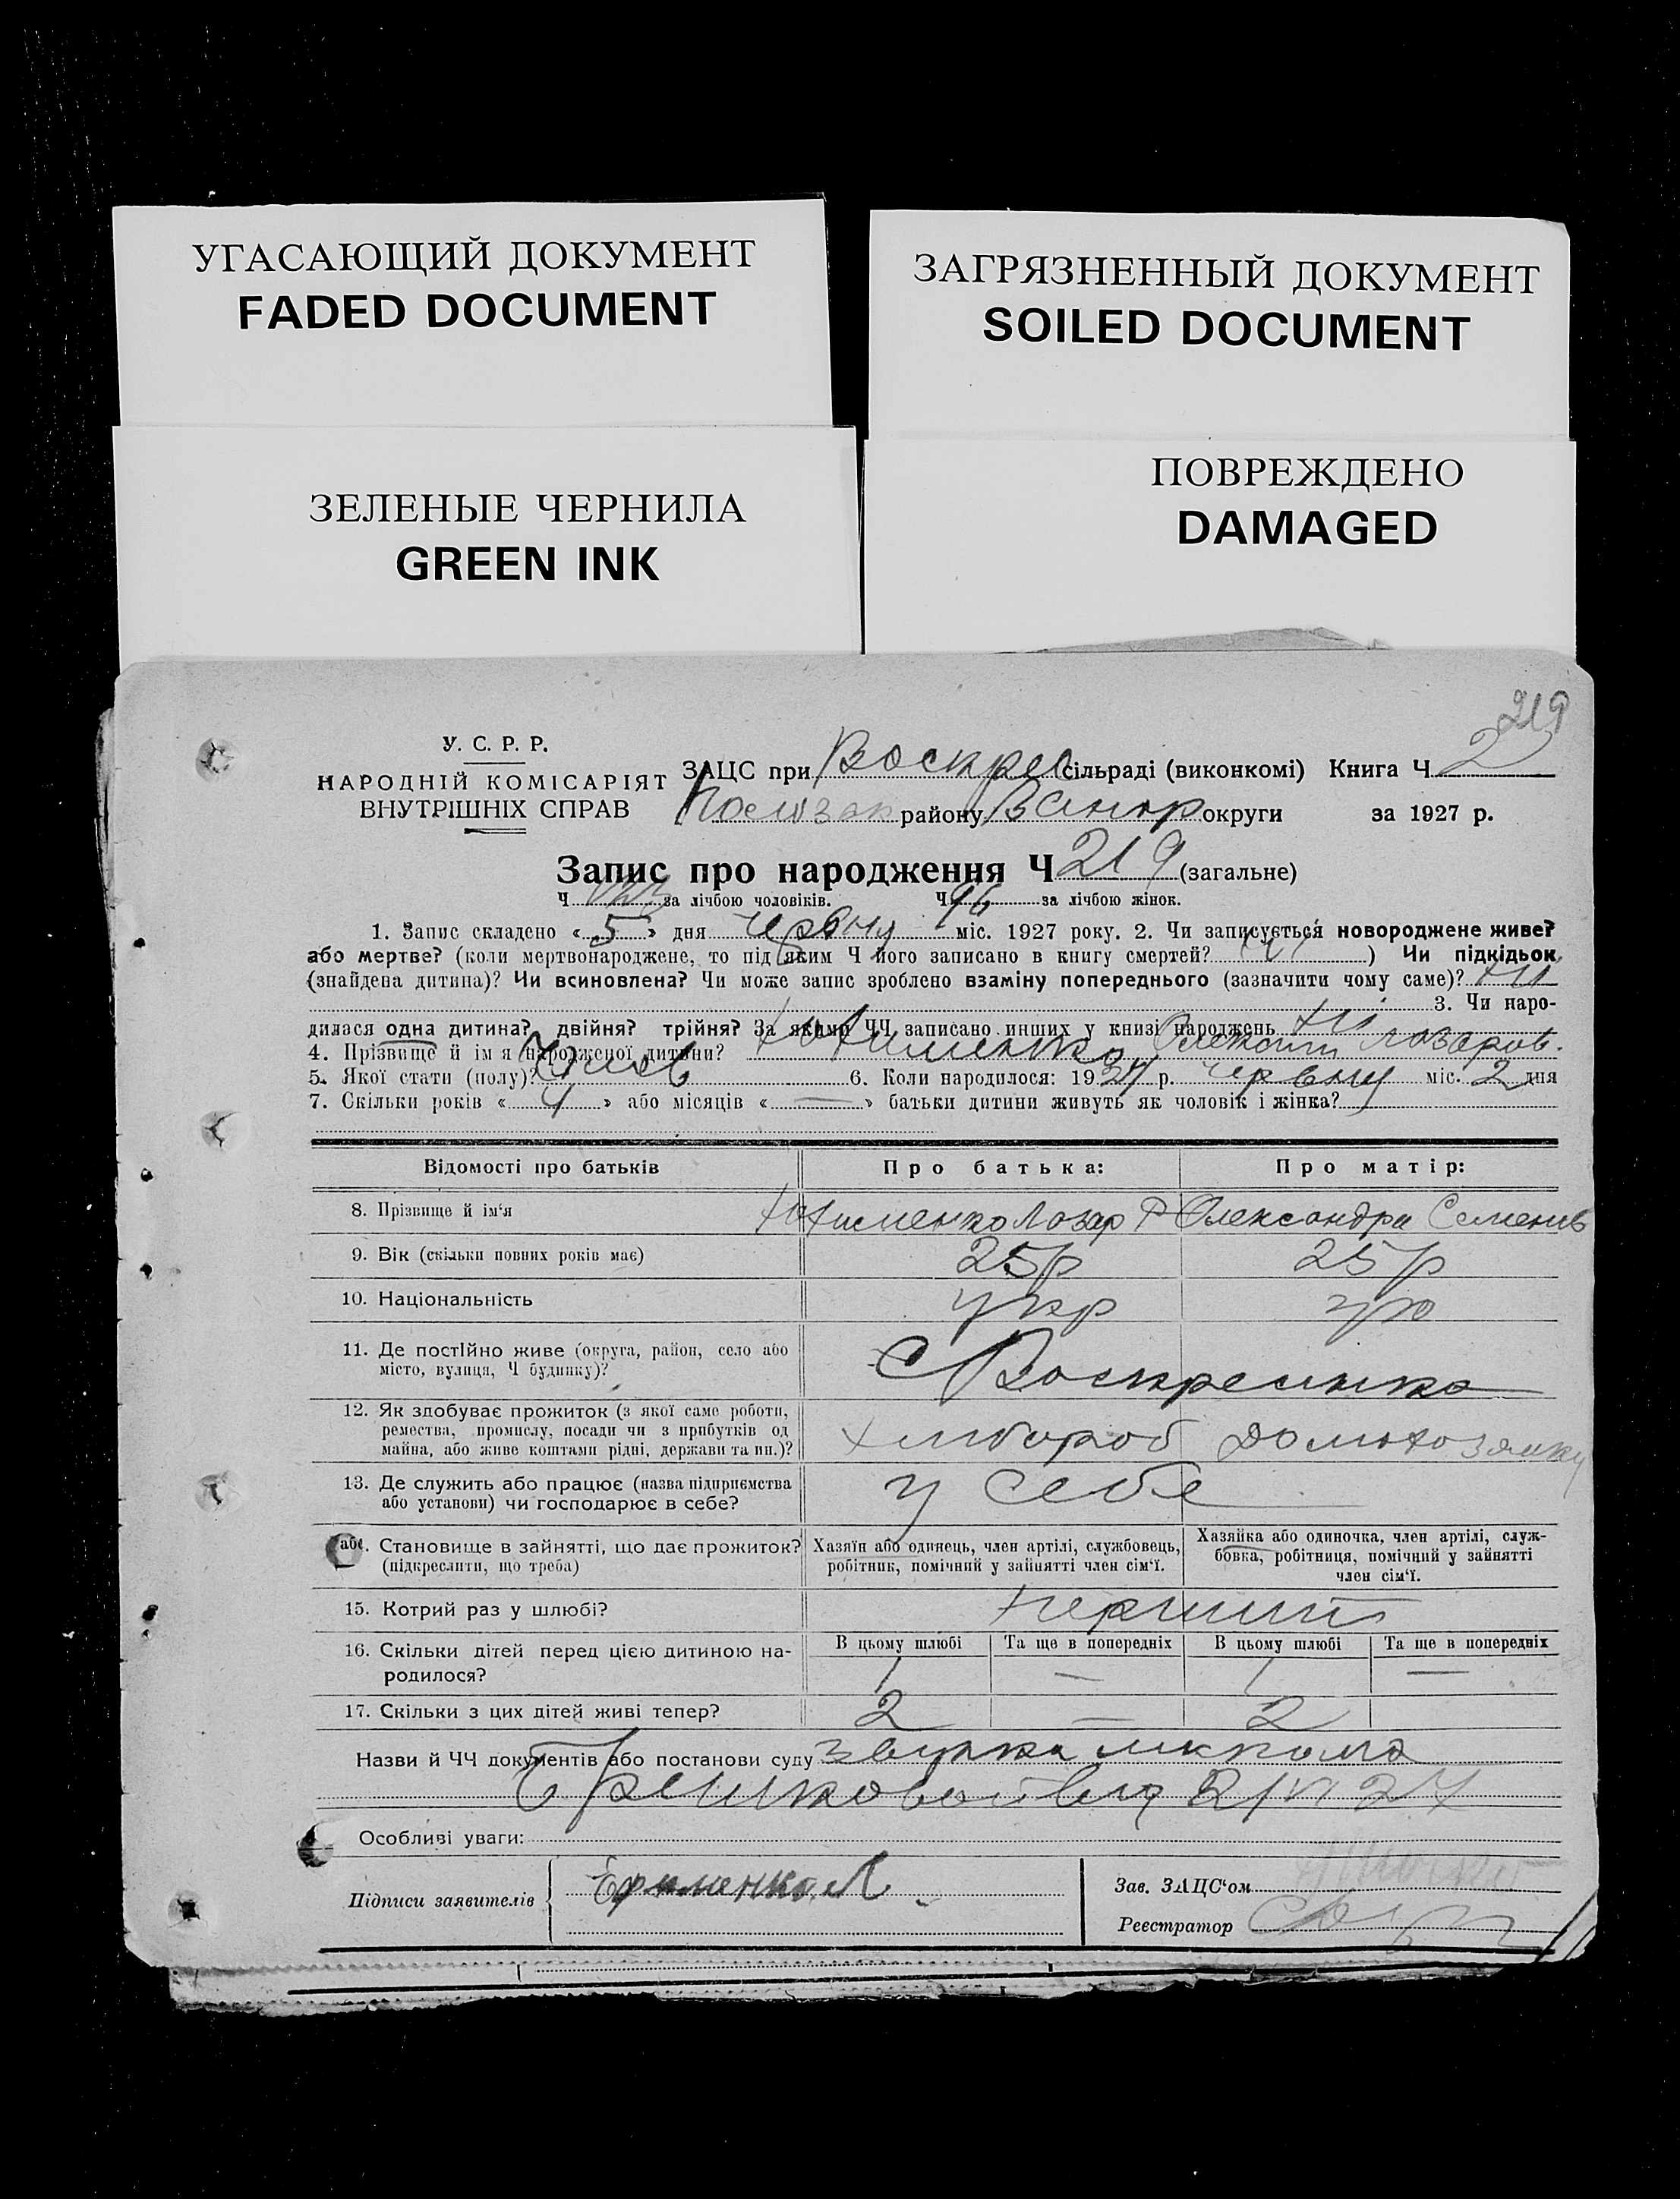 УГАСАЮЩИЙ ДОКУМЕНТ
FADED DOCUMENT
ЗАГРЯЗНЕННЫЙ ДОКУМЕНТ
SOILED DOCUMENT
ЗЕЛЕНЫЕ ЧЕРНИЛА
GREEN INK
ПОВРЕЖДЕНО
DAMAGED
219
У. С. Р. Р.
НАРОДНІЙ КОМІСАРІЯТ
ВНУТРІШНІХ СПРАВ
ЗАЦС при Воскрес сільраді (виконкомі) Книга Ч 2
району округи за 1927 р.
Запис про народження Ч 219 (загальне)
Ч 123 за лічбою чоловіків. Ч 96 за лічбою жінок.
1. Запис складено « 5 » дня червня міс. 1927 року. 2. Чи записується новороджене живе?
або мертве? (коли мертвонароджене, то під яким Ч його записано в книгу смертей? ) Чи підкідьок
(знайдена дитина)? Чи всиновлена? Чи може запис зроблено взаміну попереднього (зазначити чому саме)? ні
3. Чи наро-
дилася одна дитина? двійня? трійня? За якими ЧЧ записано инших у книзі народжень ні
4. Прізвище й ім'я народженої дитини? Лазаров.
5. Якої стати (полу)? Чолов 6. Коли народилося: 1927 р. червня міс. 2 дня
7. Скільки років « 4 » або місяців « — » батьки дитини живуть як чоловік і жінка?
Відомості про батьків Про батька: Про матір:
8. Прізвище й ім'я Лазар Р Олександра Семенів
9. Вік (скільки повних років має) 25 р 25 р
10. Національність укр укр
11. Де постійно живе (округа, район, село або
місто, вулиця, Ч будинку)? С Воскресенка
12. Як здобуває прожиток (з якої саме роботи,
ремества, промислу, посади чи з прибутків од
майна, або живе коштами рідні, держави та ин.)? хлибороб домохозяйку
13. Де служить або працює (назва підприємства
або установи) чи господарює в себе? у себе
Становище в зайнятті, що дає прожиток?
(підкреслити, що треба)
Хазяїн або одинець, член артілі, службовець,
робітник, помічний у зайнятті член сім'ї.
Хазяйка або одиночка, член артілі, служ-
бовка, робітниця, помічний у зайнятті
член сім'ї.
15. Котрий раз у шлюбі? перший
16. Скільки дітей перед цією дитиною на-
родилося?
В цьому шлюбі Та ще в попередніх В цьому шлюбі Та ще в попередніх
1 — 1 —
17. Скільки з цих дітей живі тепер? 2 — 2
Назви й ЧЧ документів або постанови суду
27
Особливі уваги:
Підписи заявителів
Зав. ЗАЦС'ом
Реєстратор